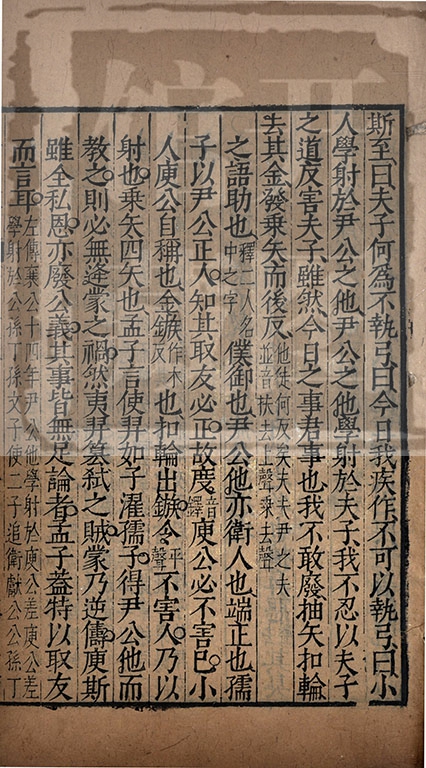 斯至曰夫子何爲不執弓曰今日我疾作不可以執弓曰小
人學射於尹公之他尹公之他學射於夫子我不忍以夫子
之道反害夫子雖然今日之事君事也我不敢廢抽矢扣輪
去其金發乘矢而後反他徒何反矣夫夫尹之夫並音扶去上聲乘去聲
之語助也釋二人名中之字僕御也尹公他亦衛人也端正也孺
子以尹公正人知其取友必正故度音鐸庾公必不害己小
人庾公自稱也金鏃作木反也扣輪出鏃令平聲不害人乃以
射也乘矢四矢也孟子言使羿如子濯孺子得尹公他而
教之則必無逄蒙之禍然夷羿簒弑之賊蒙乃逆儔庾斯
雖全私恩亦廢公義其事皆無足論者孟子蓋特以取友
而言耳左傳襄公十四年尹公他學射於庾公差庾公差學射於公孫丁孫文子使二子追衛獻公公孫丁